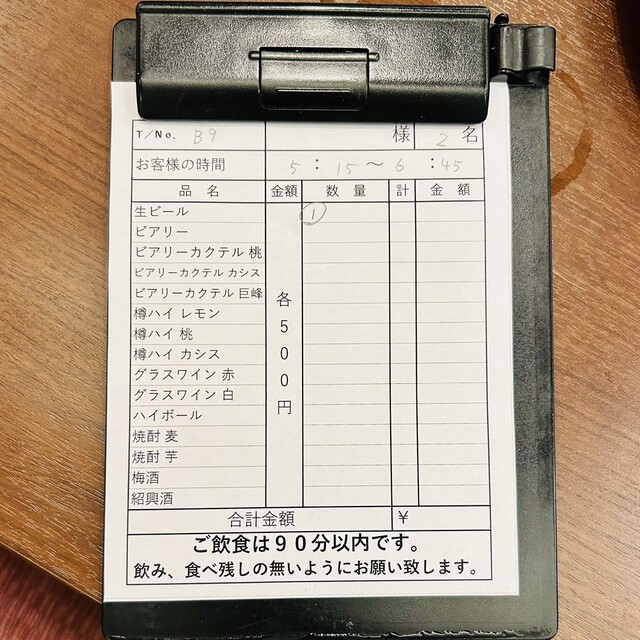 T/No. B9 様 2 名
お客様の時間 5 : 15 ～ 6 : 45
品 名 金額 数 量 計 金 額
生ビール ①
ビアリー
ビアリーカクテル 桃
ビアリーカクテル カシス
ビアリーカクテル 巨峰
樽ハイ レモン
樽ハイ 桃
樽ハイ カシス
グラスワイン 赤
グラスワイン 白
ハイボール
焼酎 麦
焼酎 芋
梅酒
紹興酒
各500円
合計金額 ￥
ご飲食は９０分以内です。
飲み、食べ残しの無いようにお願い致します。